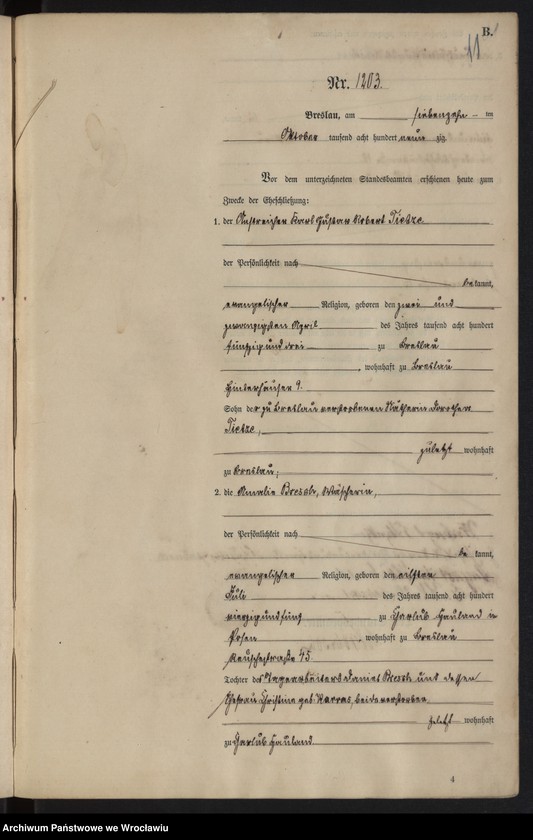 B.
11
Nr. 1203.
Breslau, am siebenzehn ten
Oktober tausend acht hundert neun zig
Vor dem unterzeichneten Standesbeamten erschienen heute zum
Zwecke der Eheschließung:
1. der Anstreicher Karl Gustav Robert Tietze
der Persönlichkeit nach
be kannt,
evangelischer Religion, geboren den zwei und
zwanzigsten April des Jahres tausend acht hundert
fünfzig und drei zu Breslau
, wohnhaft zu Breslau
Hinterhäuser 9.
Sohn der zu Breslau verstorbenen Nätherin Dorothea
Tietze,
zuletzt wohnhaft
zu Breslau;
2. die Amalie Bresch, Wäscherin,
der Persönlichkeit nach
be kannt,
evangelischer Religion, geboren den eilften
Juli des Jahres tausend acht hundert
vierzig und fünf zu Hauland in
Posen, wohnhaft zu Breslau
Reuschestraße 45
Tochter des Tagearbeiters Daniel und dessen
Ehefrau Christine geb. Karras, beide verstorben
zuletzt wohnhaft
zu Hauland.
4
Archiwum Państwowe we Wrocławiu